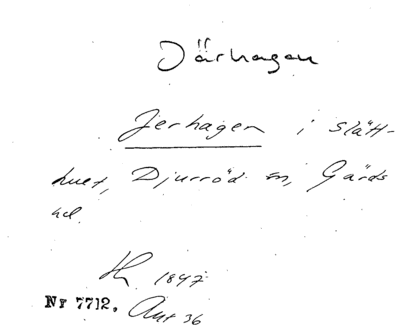 Järhagen
Jerhagen i slätt-
huet, Djurröd sn, Gärds
hd.
1847
Nr 7712. Ant 36